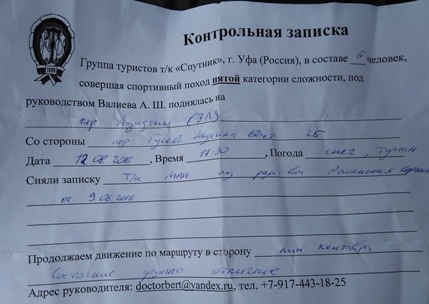 Контрольная записка
Группа туристов т/к «Спутник», г. Уфа (Россия), в составе 6 человек,
совершая спортивный поход пятой категории сложности, под
руководством Валиева А. Ш. поднялась на
пер (3А)
Со стороны пер Гусев Мухина 2Б
Дата 12 08 2016, Время 17:30, Погода снег, туман
Сняли записку т/к МАИ под рук-вом
от 9.08.2016
Продолжаем движение по маршруту в сторону пик Кентавра
состояние группы отличное
Адрес руководителя: doctorbert@yandex.ru, тел. +7-917-443-18-25